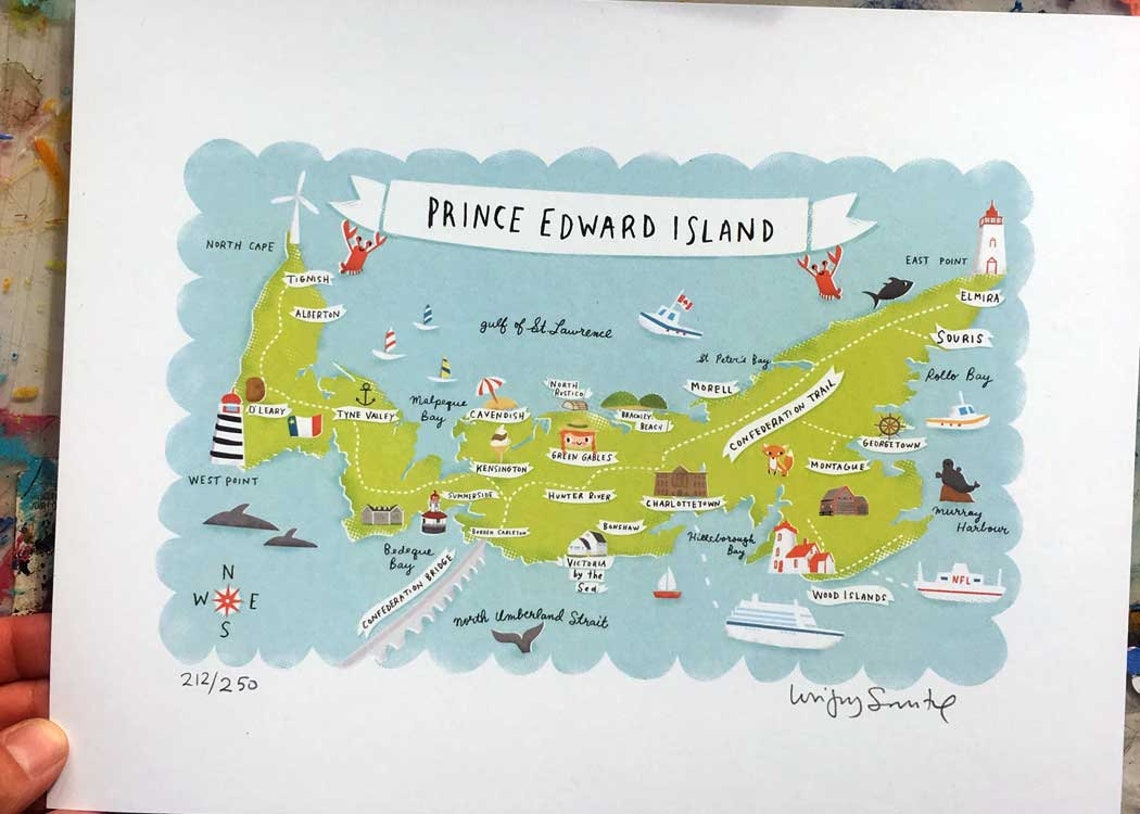 PRINCE EDWARD ISLAND
NORTH CAPE
TIGNISH
ALBERTON
EAST POINT
ELMIRA
SOURIS
gulf of St. Lawrence
St Peter's Bay
Rollo Bay
MORELL
O'LEARY
TYNE VALLEY
Malpeque
Bay
CAVENDISH
NORTH
RUSTICO
BRACKLEY
BEACH
CONFEDERATION TRAIL
GEORGETOWN
GREEN GABLES
KENSINGTON
MONTAGUE
WEST POINT
SUMMERSIDE
HUNTER RIVER
CHARLOTTETOWN
Murray
Harbour
BORDEN CARLETON
BONSHAW
Hillsborough
Bay
Bedeque
Bay
VICTORIA
by the
Sea
CONFEDERATION BRIDGE
NFL
WOOD ISLANDS
North Umberland Strait
N
W E
S
212/250